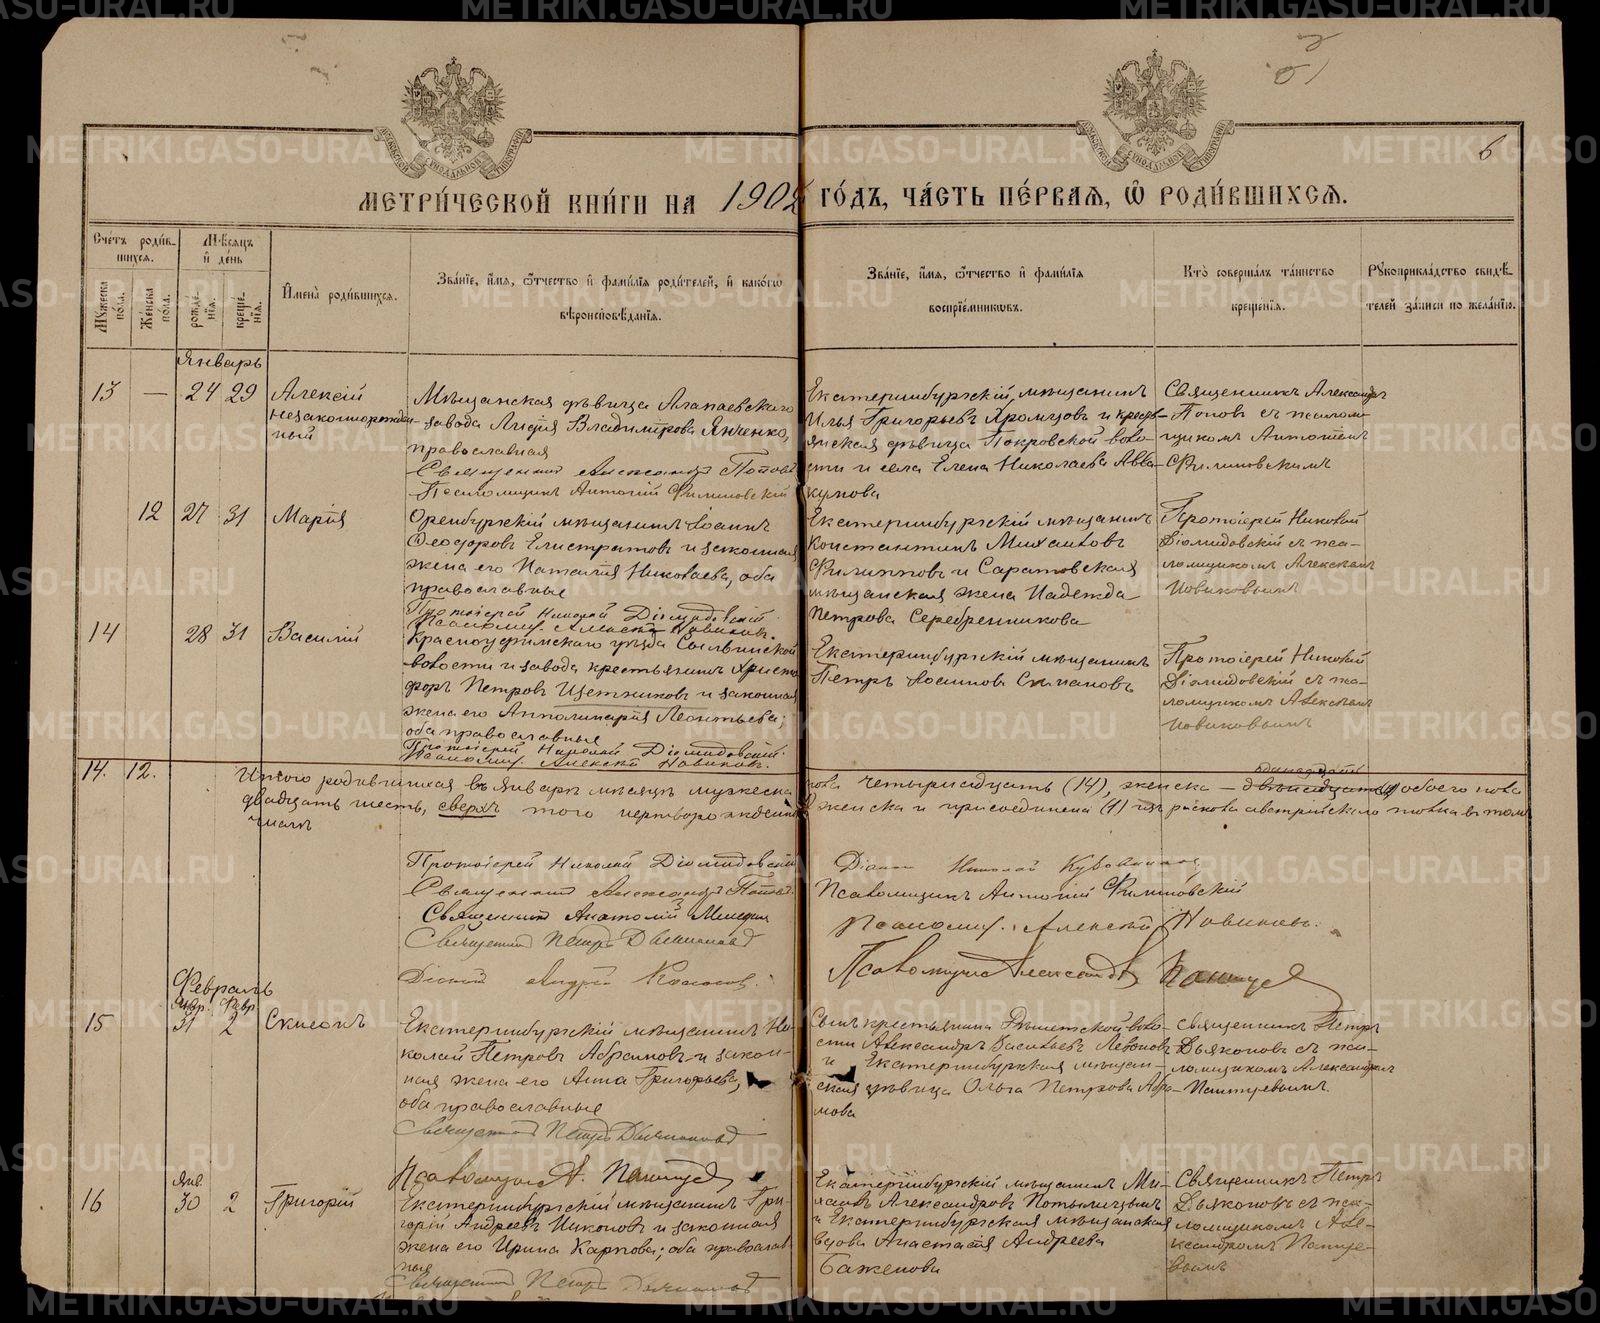 МЕТРИ́ЧЕСКОЙ КНИ́ГИ НА 1902 ГО́ДЪ, ЧА́СТЬ ПЕ́РВАѦ, Ѡ РОДИ́ВШИХСѦ.
6
Сче́тъ роди́вшихся.
Му́жеска по́ла.
Же́нска по́ла.
Мѣсяцъ и де́нь
рожде́нія.
креще́нія.
Имена̀ роди́вшихся.
Зва́ніе, имя, о́тчество и фами́лія роди́телей, и како́го
вѣроисповѣданія.
Зва́ніе, имя, о́тчество и фами́лія
воспріе́мниковъ.
Кто̀ соверша́лъ та́инство
креще́нія.
Рукоприкла́дство свидѣ-
телей за́писи по жела́нію.
Январь
13 — 24 29
Алексій
незаконорожден-
ный
Мѣщанская дѣвица Алапаевскаго
завода Лидія Владимірова Янченко,
православная
Священникъ Александръ Поповъ
Псаломщикъ Антоній Филиповскій
Екатеринбургскій мѣщанинъ
Илья Григорьевъ Хромцовъ и кресть-
янская дѣвица Покровской воло-
сти и села Елена Николаева Авва-
кумова
Священникъ Александръ
Поповъ съ псалом-
щикомъ Антоніемъ
Филиповскимъ
12 27 31
Марія
Оренбургскій мѣщанинъ Іоаннъ
Феодоровъ Елистратовъ и законная
жена его Наталія Николаева, оба
православные
Протоіерей Николай Діомидовскій
Псаломщ. Алексѣй Новиковъ.
Екатеринбургскій мѣщанинъ
Константинъ Михаиловъ
Филипповъ и Саратовская
мѣщанская жена Надежда
Петрова Серебренникова
Протоіерей Николай
Діомидовскій съ пса-
ломщикомъ Алексѣемъ
Новиковымъ
14 28 31
Василій
Красноуфимскаго уѣзда Сылвинской
волости и завода крестьянинъ Христо-
форъ Петровъ Щетниковъ и законная
жена его Апполинарія Леонтьева;
оба православные
Протоіерей Николай Діомидовскій.
Псаломщ. Алексѣй Новиковъ.
Екатеринбургскій мѣщанинъ
Петръ Іосиповъ Степановъ
Протоіерей Николай
Діомидовскій съ пса-
ломщикомъ Алексѣемъ
Новиковымъ
14. 12.
Итого родившихся въ Январѣ мѣсяцѣ мужеска пола четырнадцать (14), женска — двѣнадцать обоего пола
двадцать шесть, сверхъ того мертворожденн женска и присоединена (1) изъ раскола австрійскаго толка въ томъ
числѣ
Протоіерей Николай Діомидовскій
Священникъ Александръ Поповъ.
Священникъ Анатолій
Священникъ Петръ Дьяконовъ
Діаконъ Андрей
Діаконъ Николай
Псаломщикъ Антоній Филиповскій
Псаломщ. Алексѣй Новиковъ.
Псаломщикъ Александръ
Февраль
Янв. Февр
15 31 2
Симеонъ
Екатеринбургскій мѣщанинъ Ни-
колай Петровъ Абрамовъ и закон-
ная жена его Анна Григорьева,
оба православные
Священникъ Петръ Дьяконовъ
Псаломщикъ А.
Сынъ крестьянина воло-
сти Александръ Васильевъ
и Екатеринбургская мѣщан-
ская дѣвица Ольга Петрова Абра-
мова
Священникъ Петръ
Дьяконовъ съ пса-
ломщикомъ Александромъ
Янв.
16 30 2
Григорій
Екатеринбургскій мѣщанинъ Гри-
горій Андреевъ Никоновъ и законная
жена его Ирина Карпова; оба православ-
ные
Священникъ Петръ Дьяконовъ
Екатеринбургскій мѣщанинъ Ми-
хаилъ Александровъ
и Екатеринбургская мѣщанская
вдова Анастасія Андреева
Баженова
Священникъ Петръ
Дьяконовъ съ пса-
ломщикомъ Але-
ксандромъ
METRIKI.GASO-URAL.RU